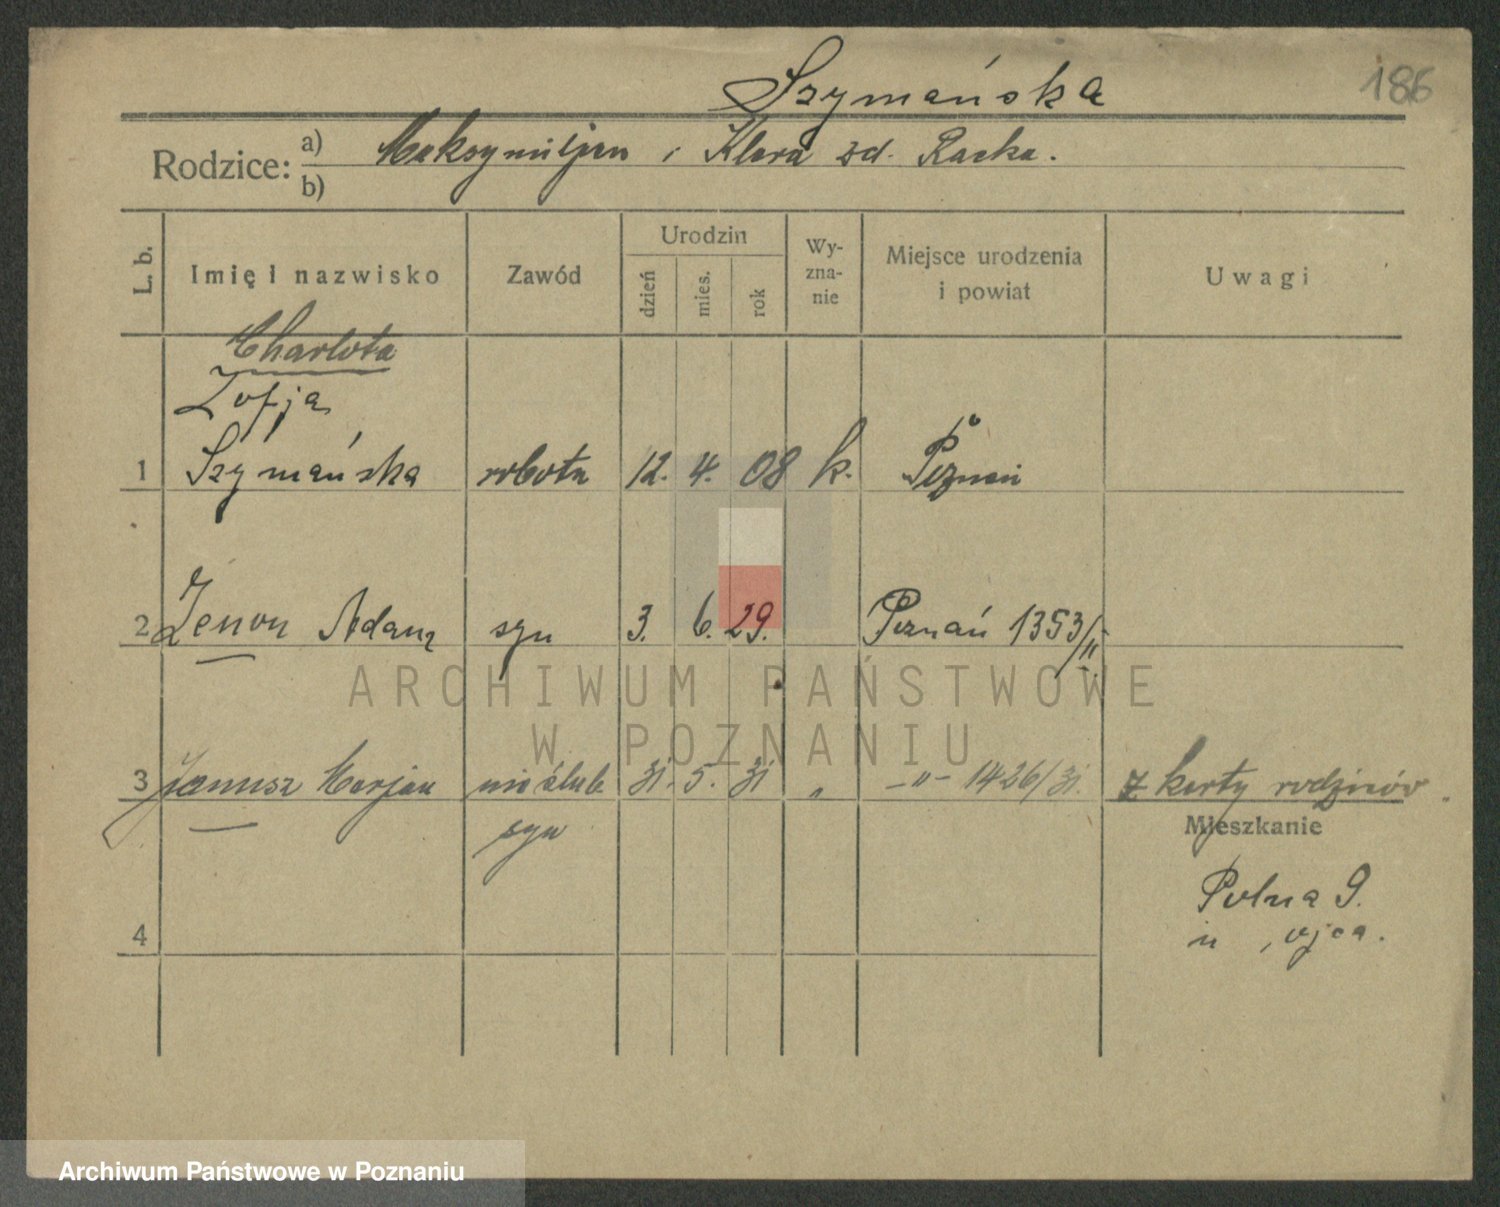 Szymańska
186
Rodzice: a) Maksymiljan i Klara zd. Racka.
b)
L. b.
Imię i nazwisko
Zawód
Urodzin
dzień
mies.
rok
Wy-
zna-
nie
Miejsce urodzenia
i powiat
Uwagi
Charlota
Zofja
1 Szymańska robotn 12. 4. 08 k. Poznań
2 Zenon Adam syn 3. 6. 29. Poznań 1353/II
ARCHIWUM PAŃSTWOWE
W POZNANIU
3 Janusz Marjan nieślub 31. 5. 31 „ -„- 1426/31. z karty rodziców.
syn
Mieszkanie
Polna 9.
u ojca.
4
Archiwum Państwowe w Poznaniu